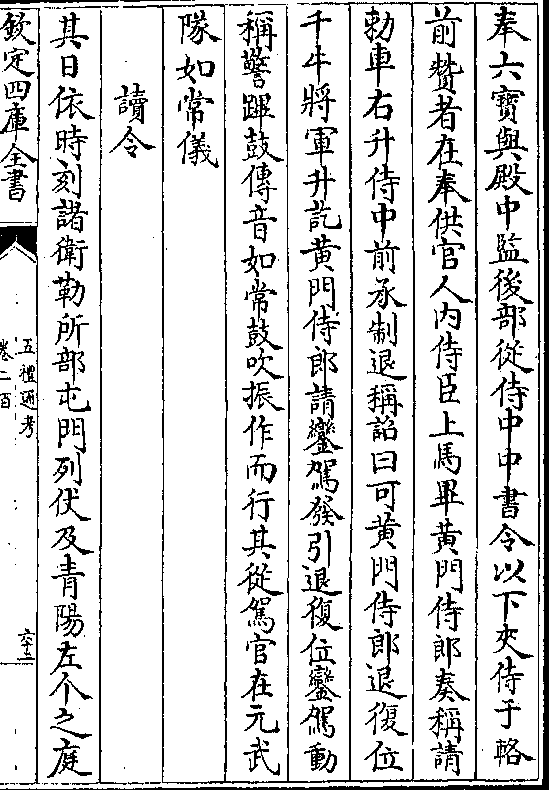 奉六寶與殿中監後部從侍中中書令以下夾侍于輅
前贊者在奉供官人内侍臣上馬畢黄門侍郎奏稱請
勅車右升侍中前承制退稱詔曰可黄門侍郎退復位
千牛將軍升訖黄門侍郎請鑾駕發引退復位鑾駕動
稱警蹕鼓傳音如常鼓吹振作而行其從駕官在元武
隊如常儀
讀令
其日依時刻諸衛勒所部屯門列仗及青陽左个之庭
欽定四庫全書
五禮通考
卷二百
六十五